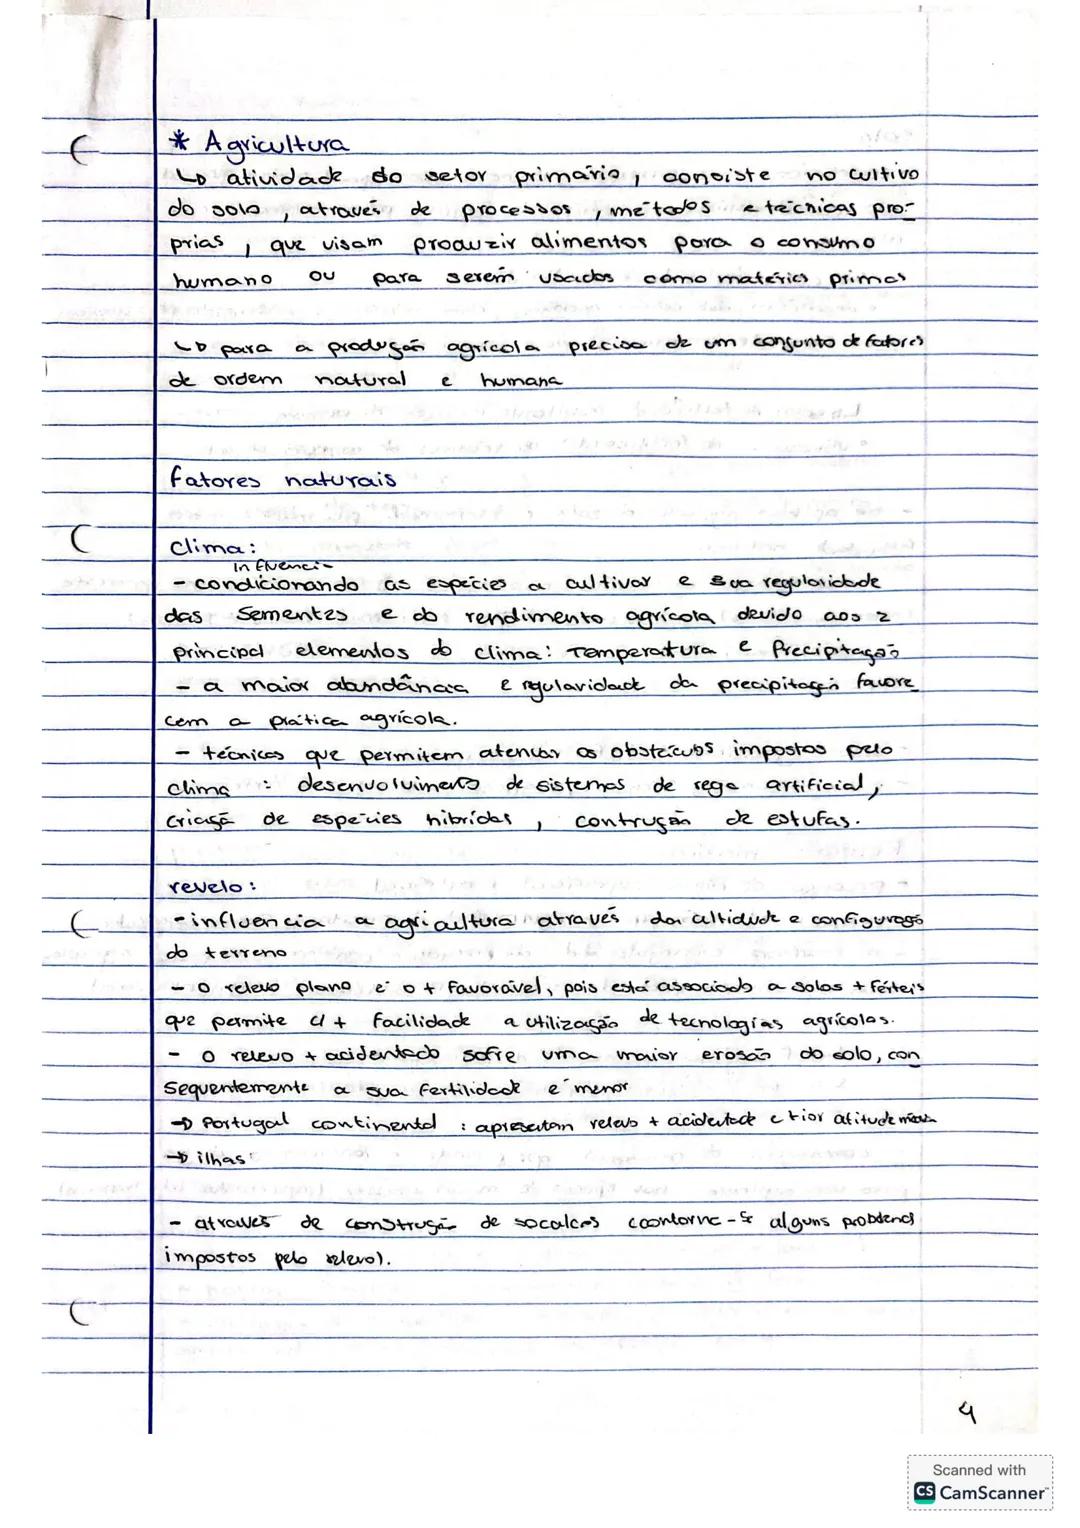 * Agricultura
↳ atividade do setor primário, consiste no cultivo
do solo, através de processos, métodos e técnicas pró-
prias, que visam produzir alimentos para o consumo
humano ou para serem usados como matérias primas
↳ para a produção agrícola precisa de um conjunto de fatores
de ordem natural e humana
fatores naturais
clima:
influencia
- condicionando as espécies a cultivar e sua regularidade
das sementes e do rendimento agrícola devido aos 2
principal elementos do clima: Temperatura e Precipitação
- a maior abundância e regularidade da precipitação favore
cem a prática agrícola.
- técnicas que permitem atenuar os obstáculos impostos pelo
clima: desenvolvimento de sistemas de rega artificial,
criação de espécies hibridas, contrução de estufas.
revelo:
- influencia a agricultura através da altidude e configuração
do terreno
- o relevo plano é o + favorável, pois está associado a solos + férteis
que permite c/ + facilidade a utilização de tecnologias agrícolas.
- o relevo + acidentado sofre uma maior erosão do solo, con
sequentemente a sua fertilidade é menor
→ Portugal continental : apresentam relevo + acidentado e altitude média
→ ilhas:
- através de construção de socalcos (contorna-se alguns problemas
impostos pelo relevo).
4
Scanned with
CS CamScanner